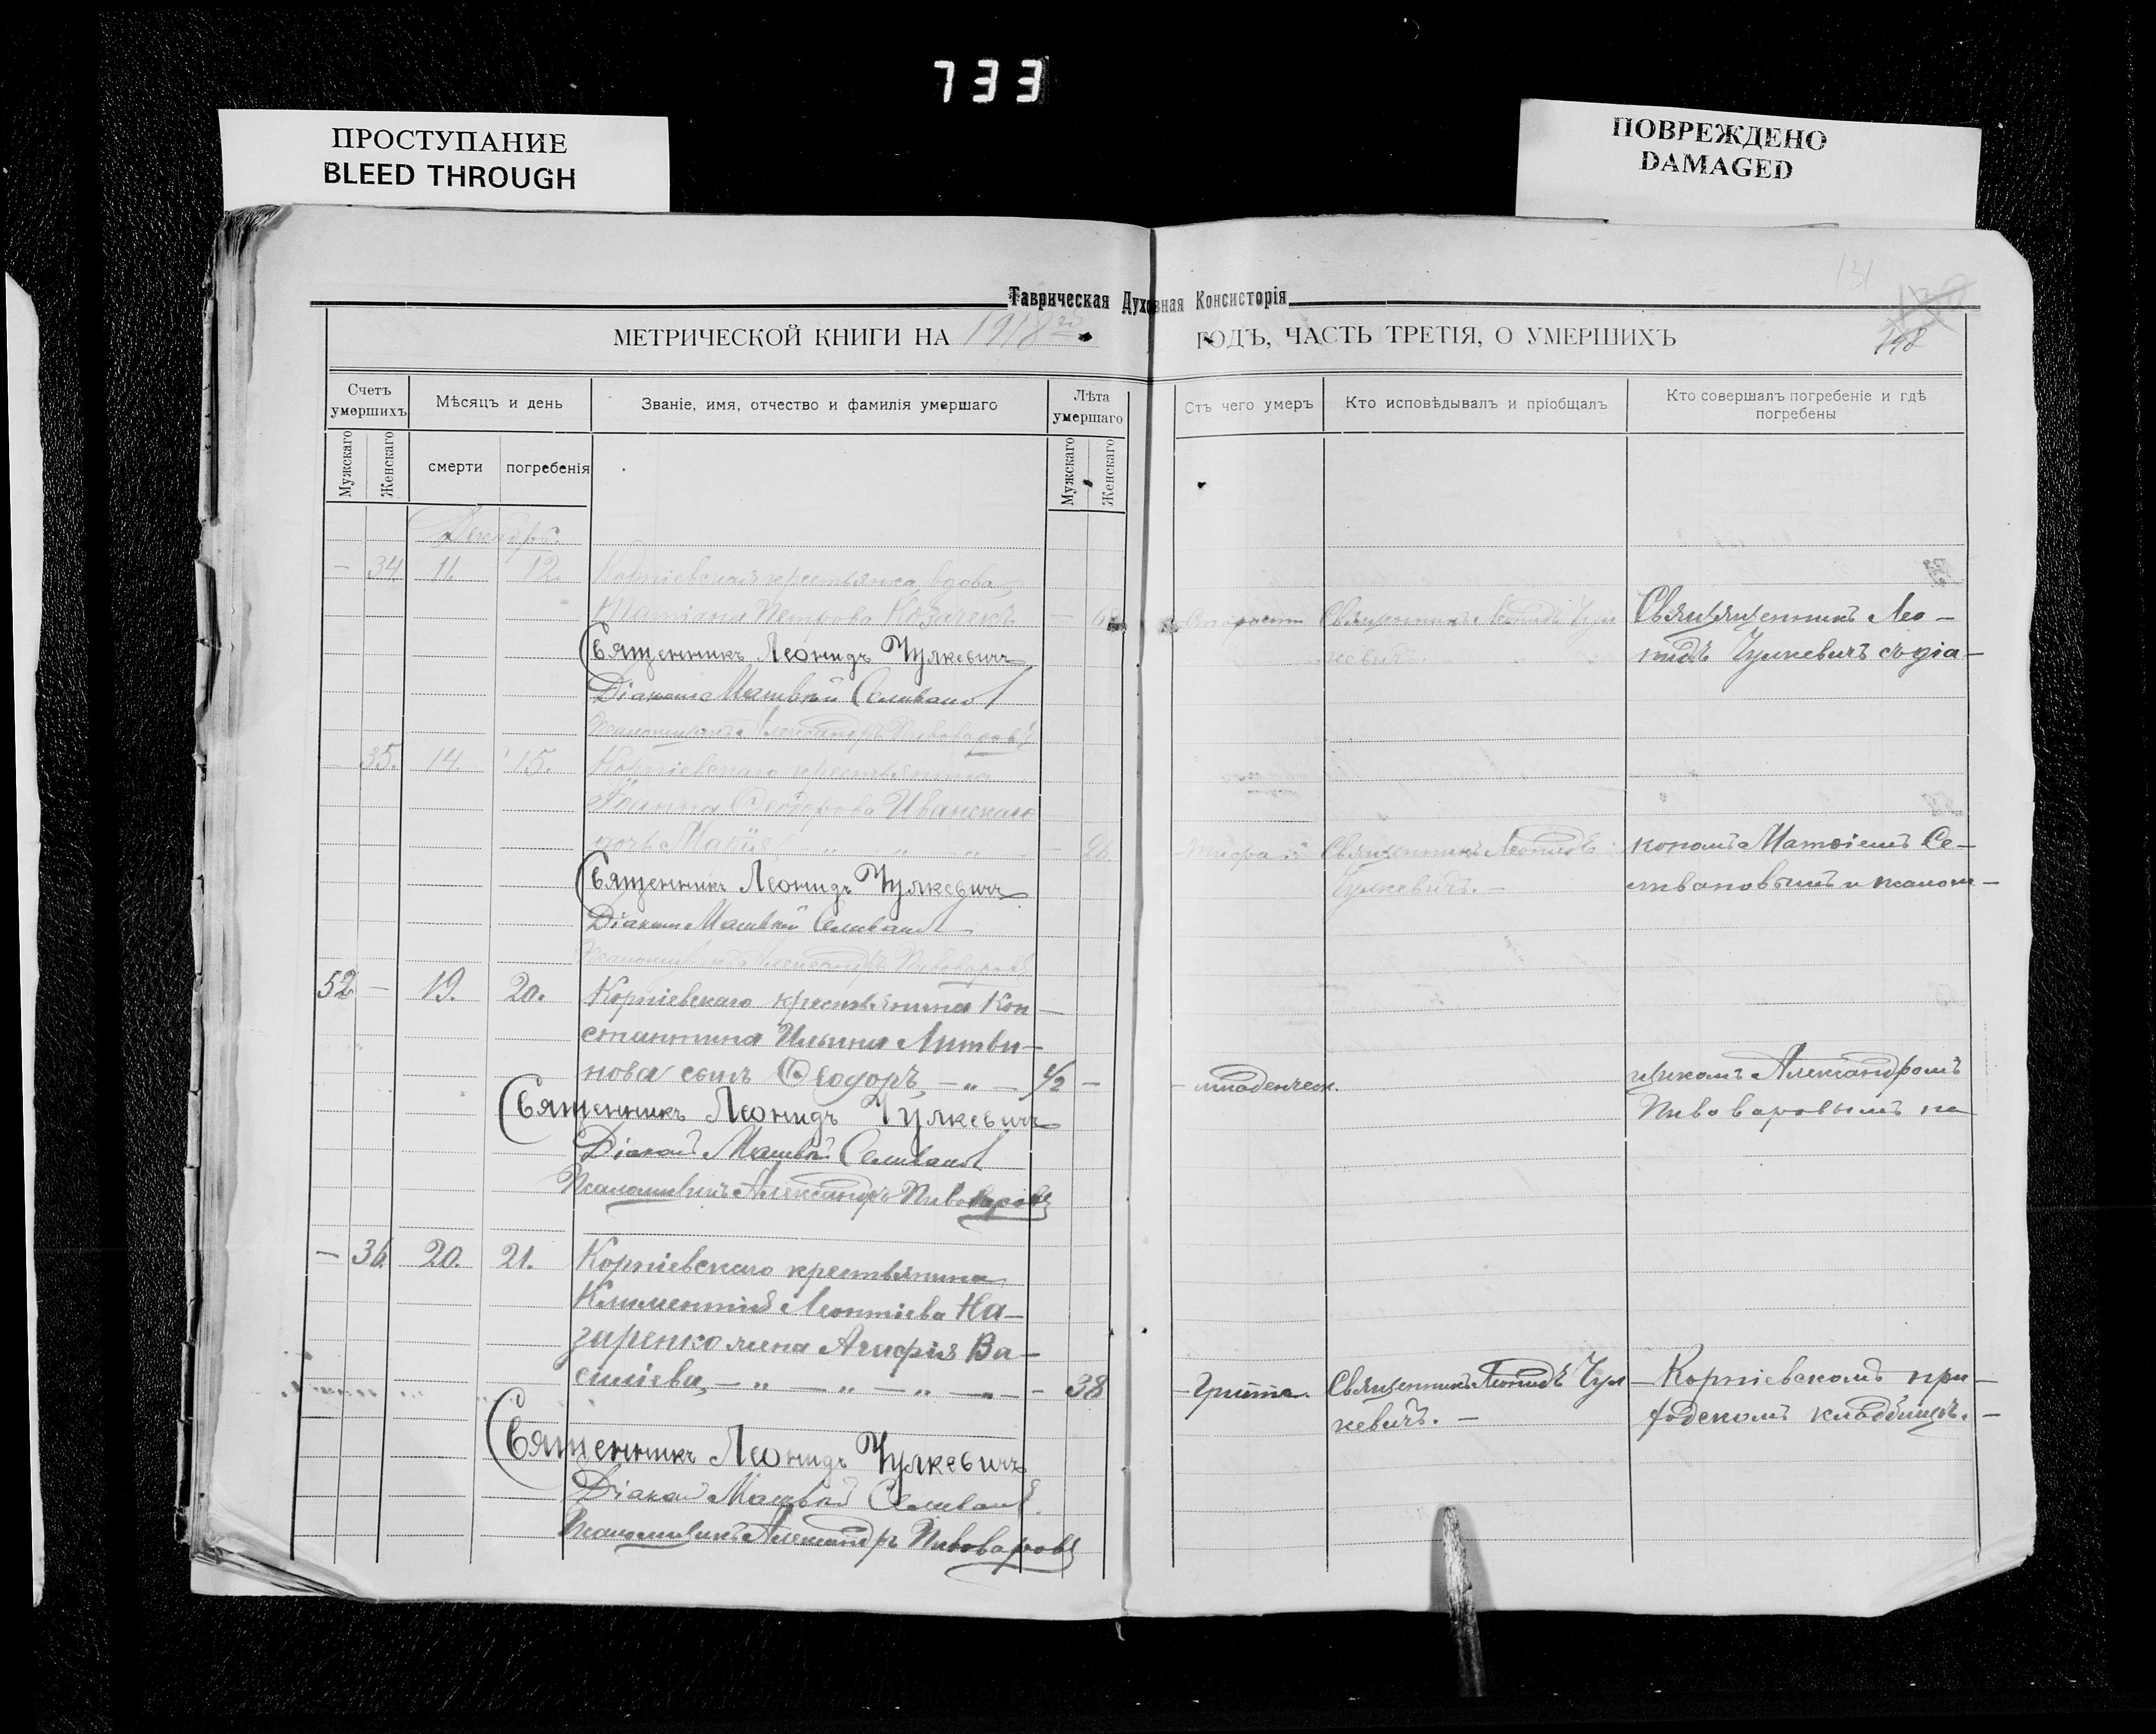 733
ПРОСТУПАНИЕ
BLEED THROUGH
ПОВРЕЖДЕНО
DAMAGED
131
148
Таврическая Духовная Консисторія
МЕТРИЧЕСКОЙ КНИГИ НА 1918й ГОДЪ, ЧАСТЬ ТРЕТІЯ, О УМЕРШИХЪ
Счетъ умершихъ
Мужскаго
Женскаго
Мѣсяцъ и день
смерти
погребенія
Званіе, имя, отчество и фамилія умершаго
Лѣта умершаго
Мужскаго
Женскаго
Отъ чего умеръ
Кто исповѣдывалъ и пріобщалъ
Кто совершалъ погребеніе и гдѣ погребены
Декабрь.
— 34 11. 12. Корніевская крестьянка вдова
Татіана Петрова — старости Священникъ Леонидъ Чул Священникъ Лео—
Священникъ Леонидъ Чулкевичъ кевичъ. нидъ Чулкевичъ съ діа—
Діаконъ Матвѣй Селивановъ
Псаломщикъ Александръ Пивоваровъ
35. 14. 15. Корніевскаго крестьянина
Іоанна Ѳеодорова Иванскаго
дочь — 26. Священникъ Леонидъ кономъ Матѳіемъ Се—
Священникъ Леонидъ Чулкевичъ Чулкевичъ. — ливановымъ и псалом—
Діаконъ Матвѣй Селивановъ
Псаломщикъ Александръ Пивоваровъ
52 — 19. 20. Корніевскаго крестьянина Кон—
стантина Ильина Литви—
нова сынъ Ѳеодоръ — „ — 1/2 — младенческ. щикомъ Александромъ
Священникъ Леонидъ Чулкевичъ Пивоваровымъ на
Діаконъ Матвѣй Селивановъ
Псаломщикъ Александръ Пивоваровъ
— 36. 20. 21. Корніевскаго крестьянина
Климентія Леонтіева На—
зиренко жена Агафія Ва—
силіева, — „ — „ — „ — „ — 38 Священникъ Леонидъ Чул— Корніевскомъ при—
кевичъ. — ходскомъ кладбищѣ. —
Священникъ Леонидъ Чулкевичъ
Діаконъ Матвѣй Селивановъ
Псаломщикъ Александръ Пивоваровъ